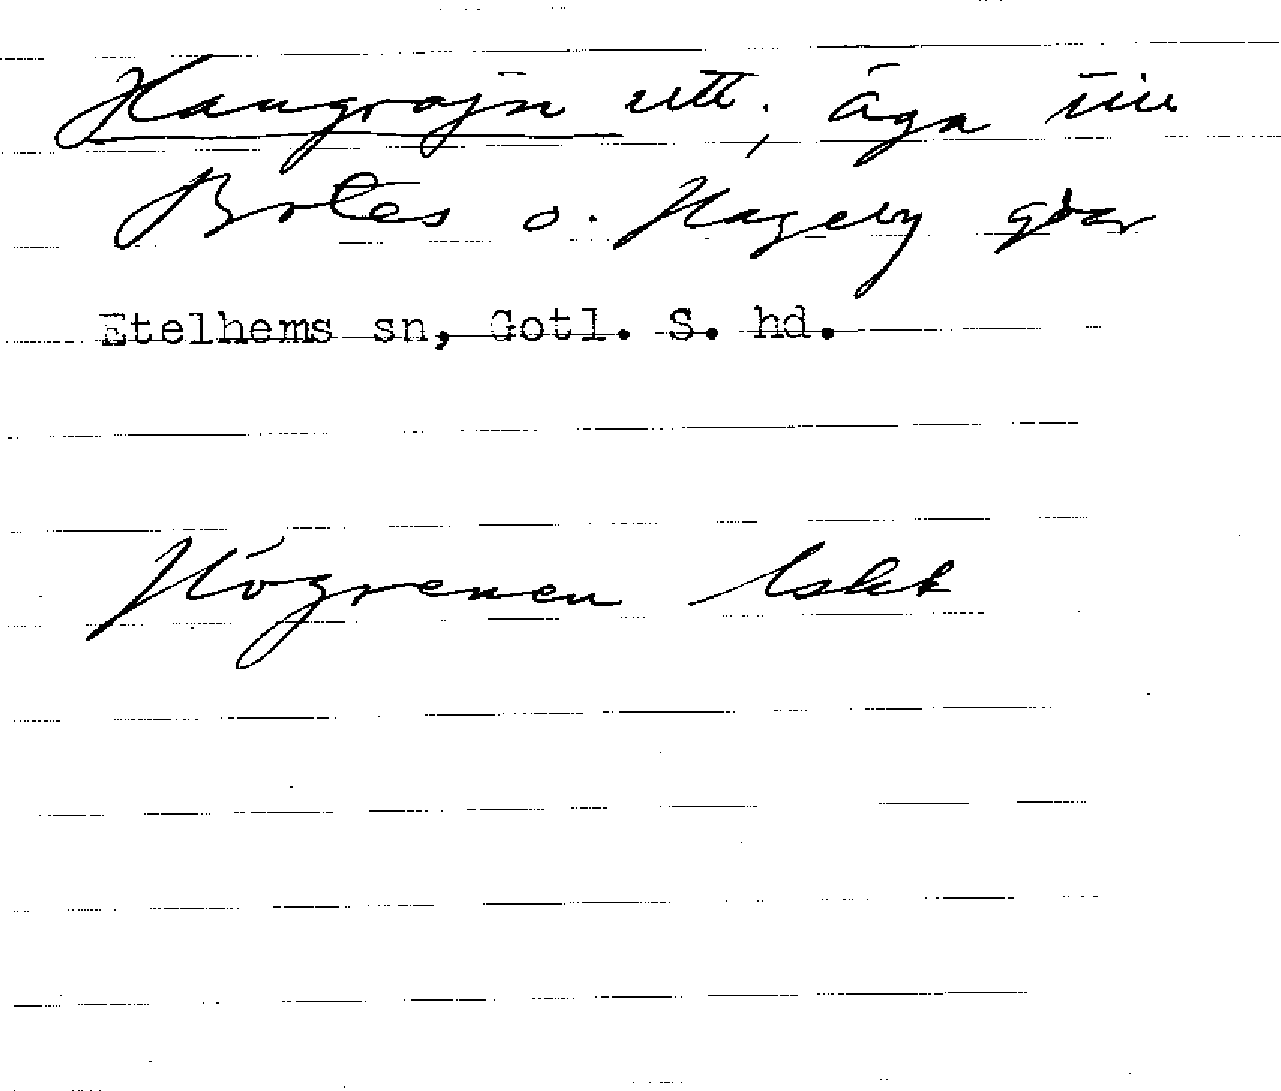 Haugrojn utt., äga till
Botes o. Hageby gdar
Etelhems sn, Gotl. S. hd.
Högrenen lskt